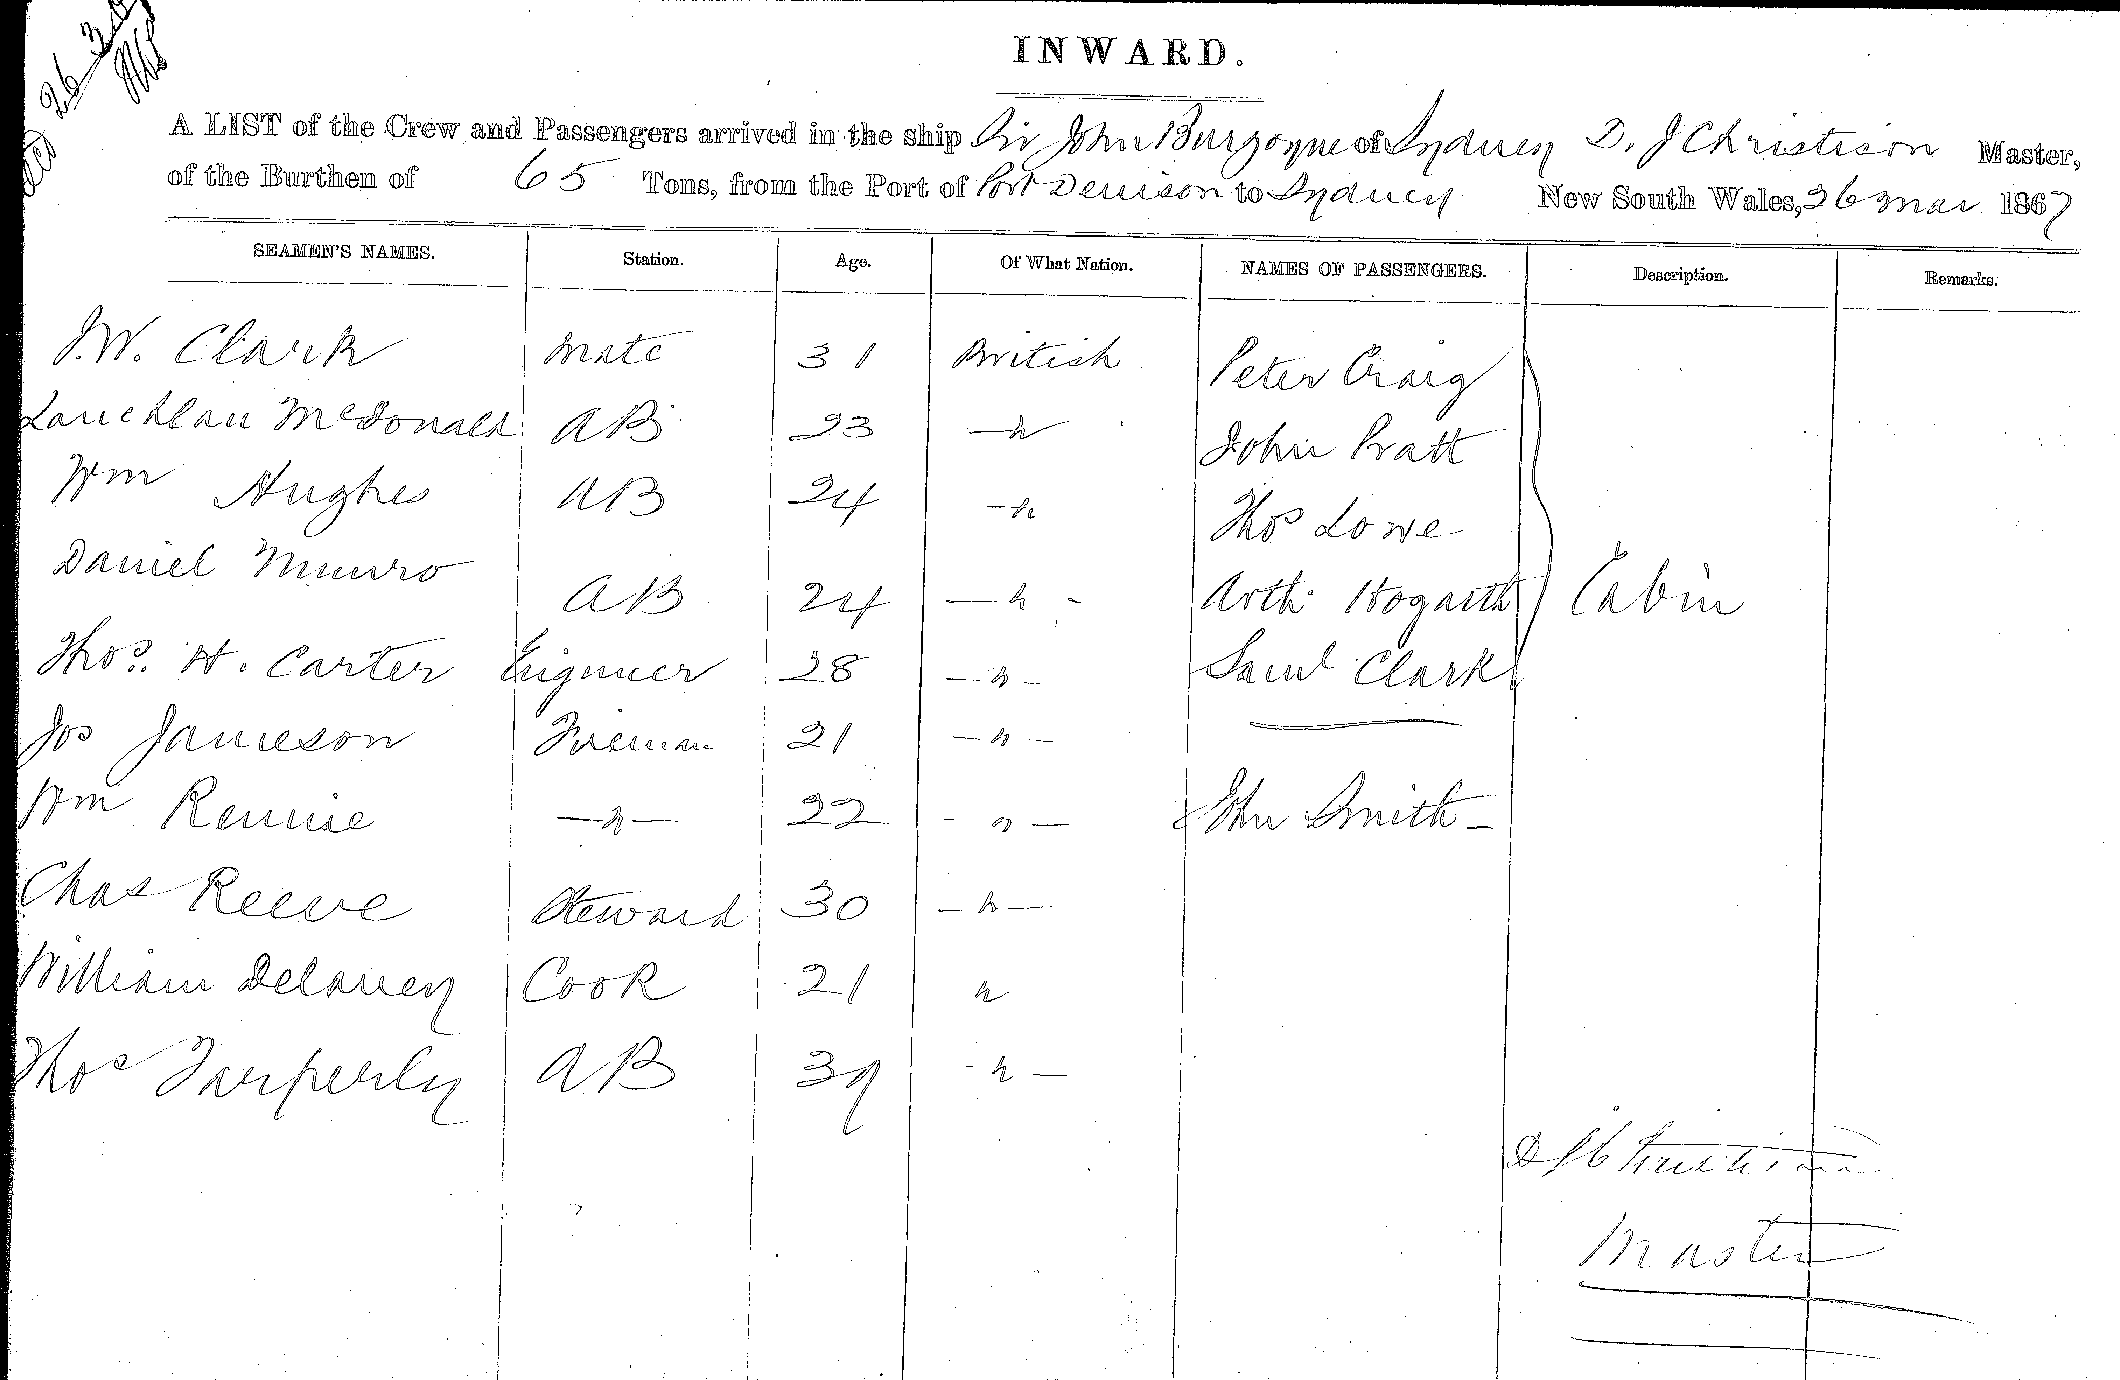 26
INWARD.
A LIST of the Crew and Passengers arrived in the ship Sir John Burgoyne of Sydney D. J Christison Master,
of the Burthen of 65 Tons, from the Port of Port Denison to Sydney New South Wales, 26 Mar 1867
SEAMEN'S NAMES. Station. Age. Of What Nation. NAMES OF PASSENGERS. Description. Remarks.
J.W. Clark Mate 31 British Peter Craig
Lauchlan McDonald AB 23 John Pratt
Wm Hughes AB 24 Thos Lowe
Daniel Munro AB 24 Arth. Hogarth Cabin
Thos. H. Carter Engineer 28 Saml Clark
Jos Jameson Fireman 21
Wm Rennie 22 John Smith
Chas Reeve Steward 30
William Delaney Cook 21
Thos AB 39
D J Christison
Master